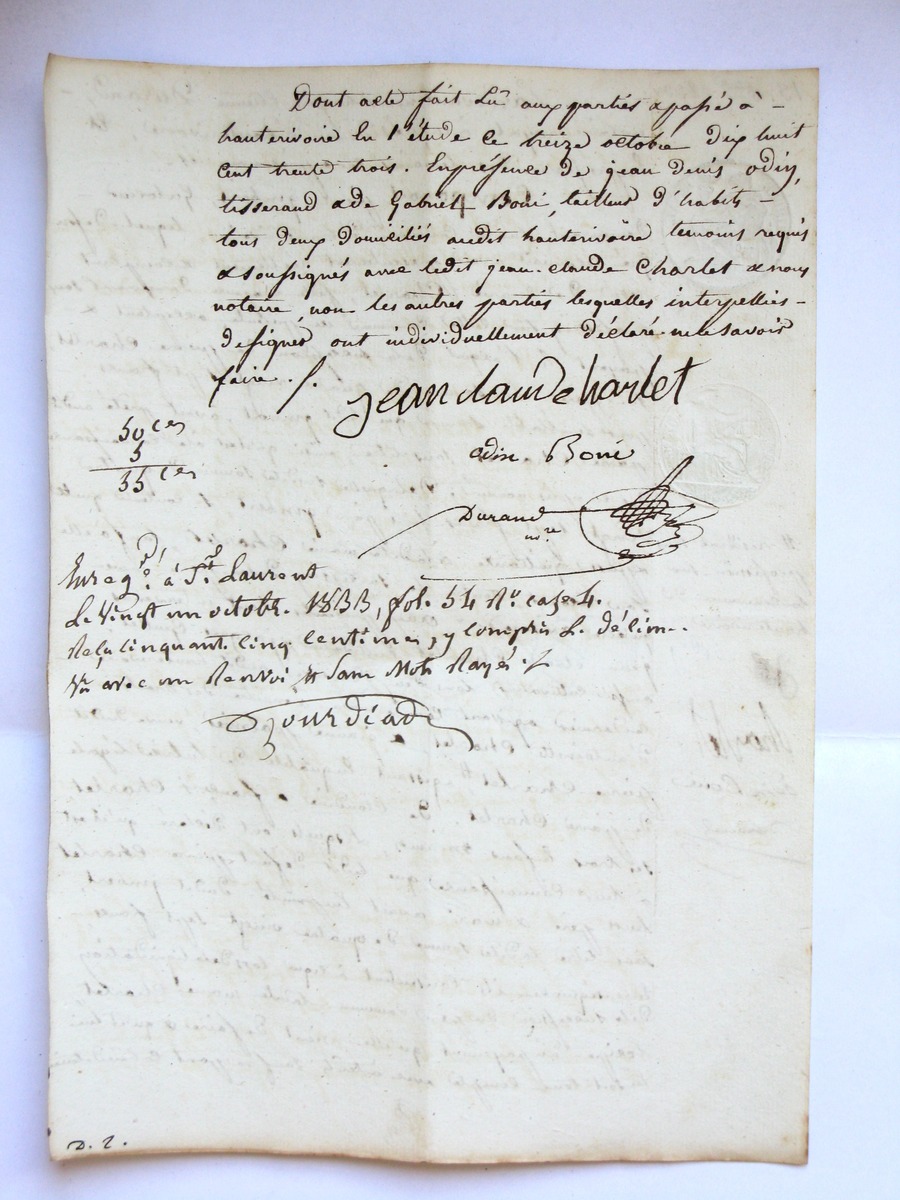 Dont acte fait Lu aux parties & passé à -
hauterivoire En l'étude ce treize octobre dix huit
Cent trente trois. En présence de jean denis odin,
tisserand & de Gabriel Boni, tailleur d'habits -
tous deux domiciliés audit hauterivoire temoins requis
& soussignés avec ledit jean-claude Charlet & nous
notaire, non les autres parties lesquelles interpellées -
de signer ont individuellement déclaré ne le savoir
faire ./.
jean claude charlet
50 ces
5
55 ces
odin Boni
Durand
nre
Enregré. à St. Laurent
Le Vingt un octobr. 1833, fol. 54 Ro. case 4.
Reçu cinquante cinq centimes, y compris L. déxim..
Vu avec un Renvoi & Sans Mots Rayés ./
Jourdiad
D. 2.